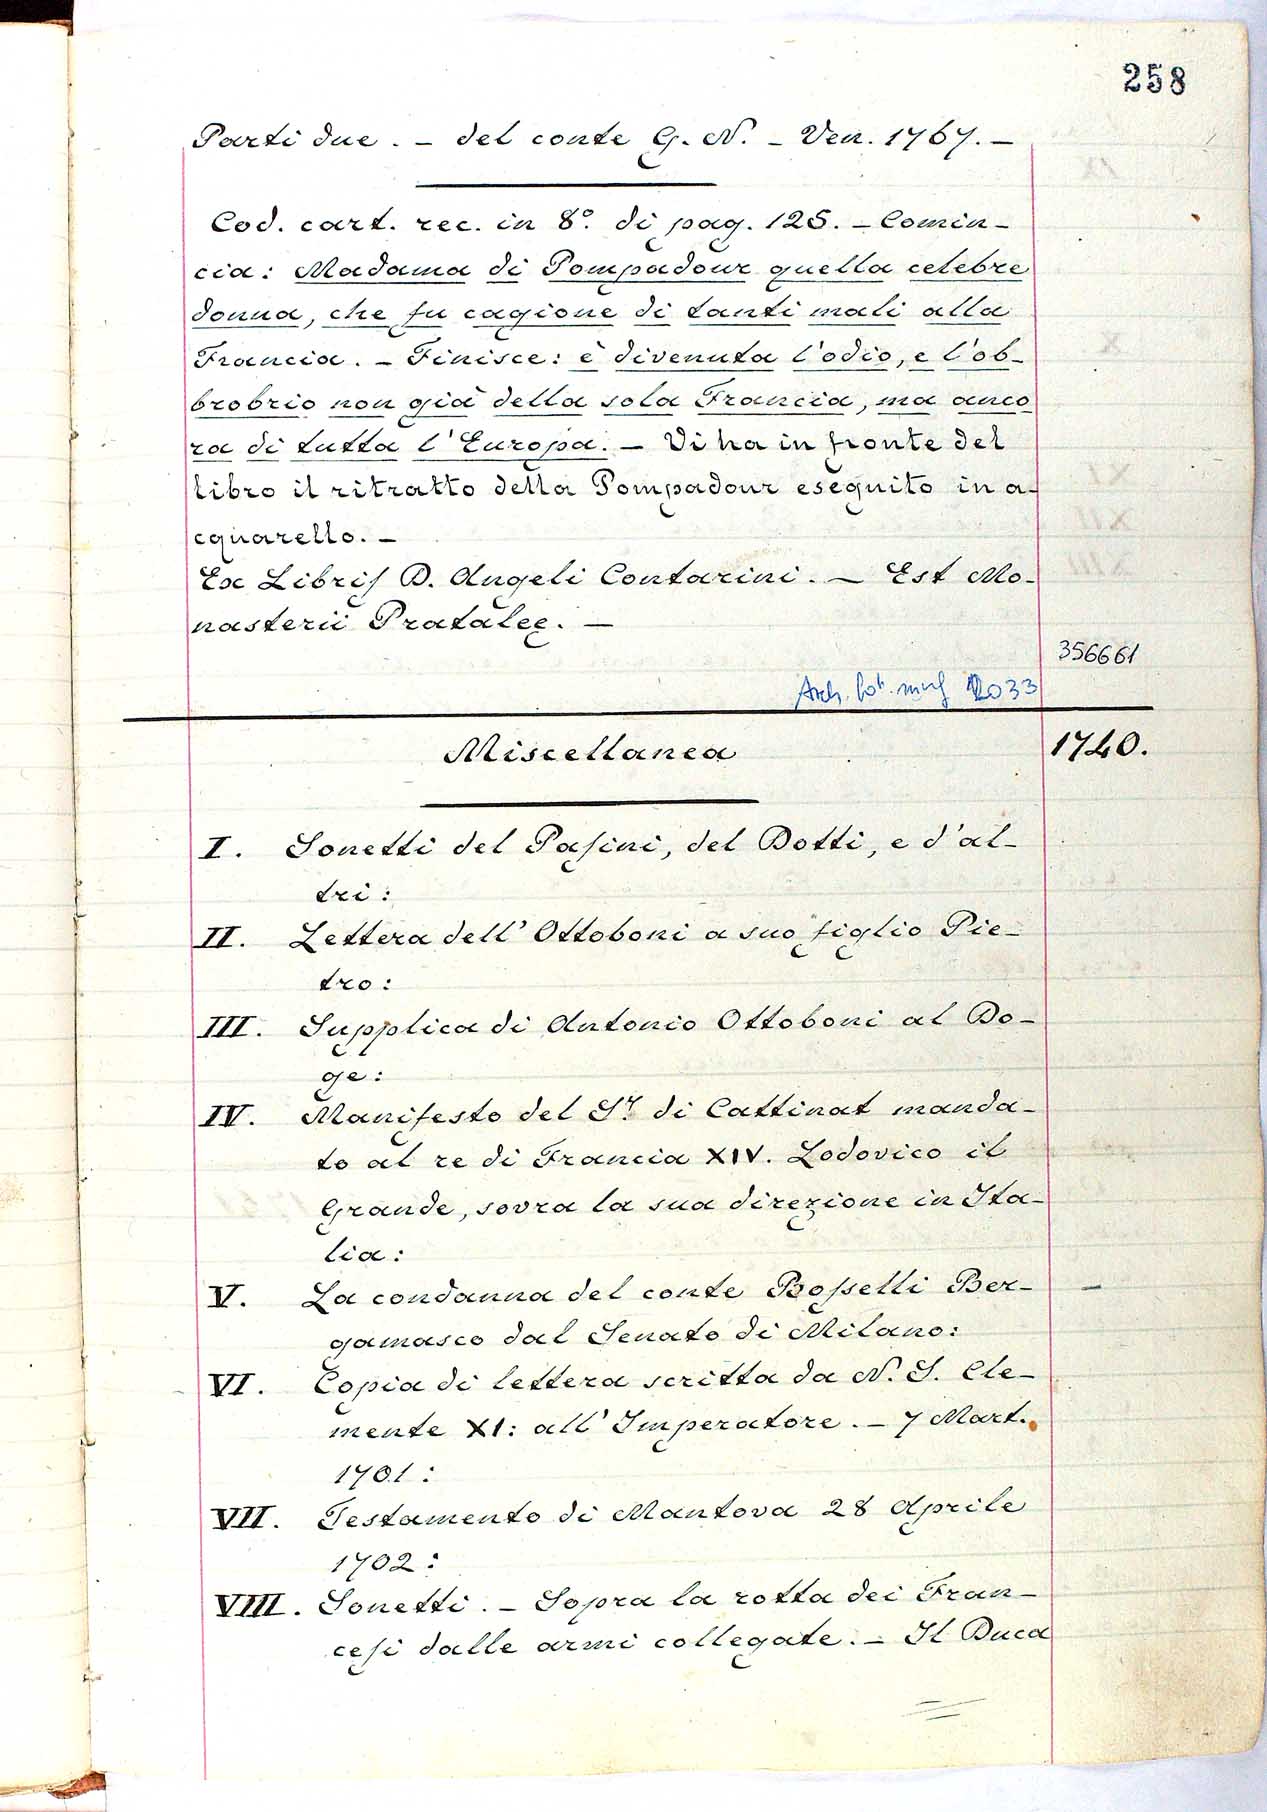 258
Parti due. – del conte G. N. – Ven. 1767. –
Cod. cart. rec. in 8° di pag. 125. – Comin-
cia: Madama di Pompadour quella celebre
donna, che fu cagione di tanti mali alla
Francia. – Finisce: è divenuta l'odio, e l'ob-
brobrio non già della sola Francia, ma anco
ra di tutta l'Europa. – Vi ha in fronte del
libro il ritratto della Pompadour eseguito in a-
cquarello. –
Ex Libris D. Angeli Contarini. – Est Mo-
nasterii Pratalee. –
356661
Arch. fot. 2033
Miscellanea
1740.
I. Sonetti del Pasini, del Dotti, e d'al-
tri:
II. Lettera dell'Ottoboni a suo figlio Pie-
tro:
III. Supplica di Antonio Ottoboni al Do-
ge:
IV. Manifesto del Sr. di Cattinat manda-
to al re di Francia XIV. Lodovico il
Grande, sovra la sua direzione in Ita-
lia:
V. La condanna del conte Bosselli Ber-
gamasco dal Senato di Milano:
VI. Copia di lettera scritta da N. S. Cle-
mente XI: all'Imperatore. – 7 Mart.
1701:
VII. Testamento di Mantova 28 Aprile
1702:
VIII. Sonetti. – Sopra la rotta dei Fran-
cesi dalle armi collegate. – Il Duca